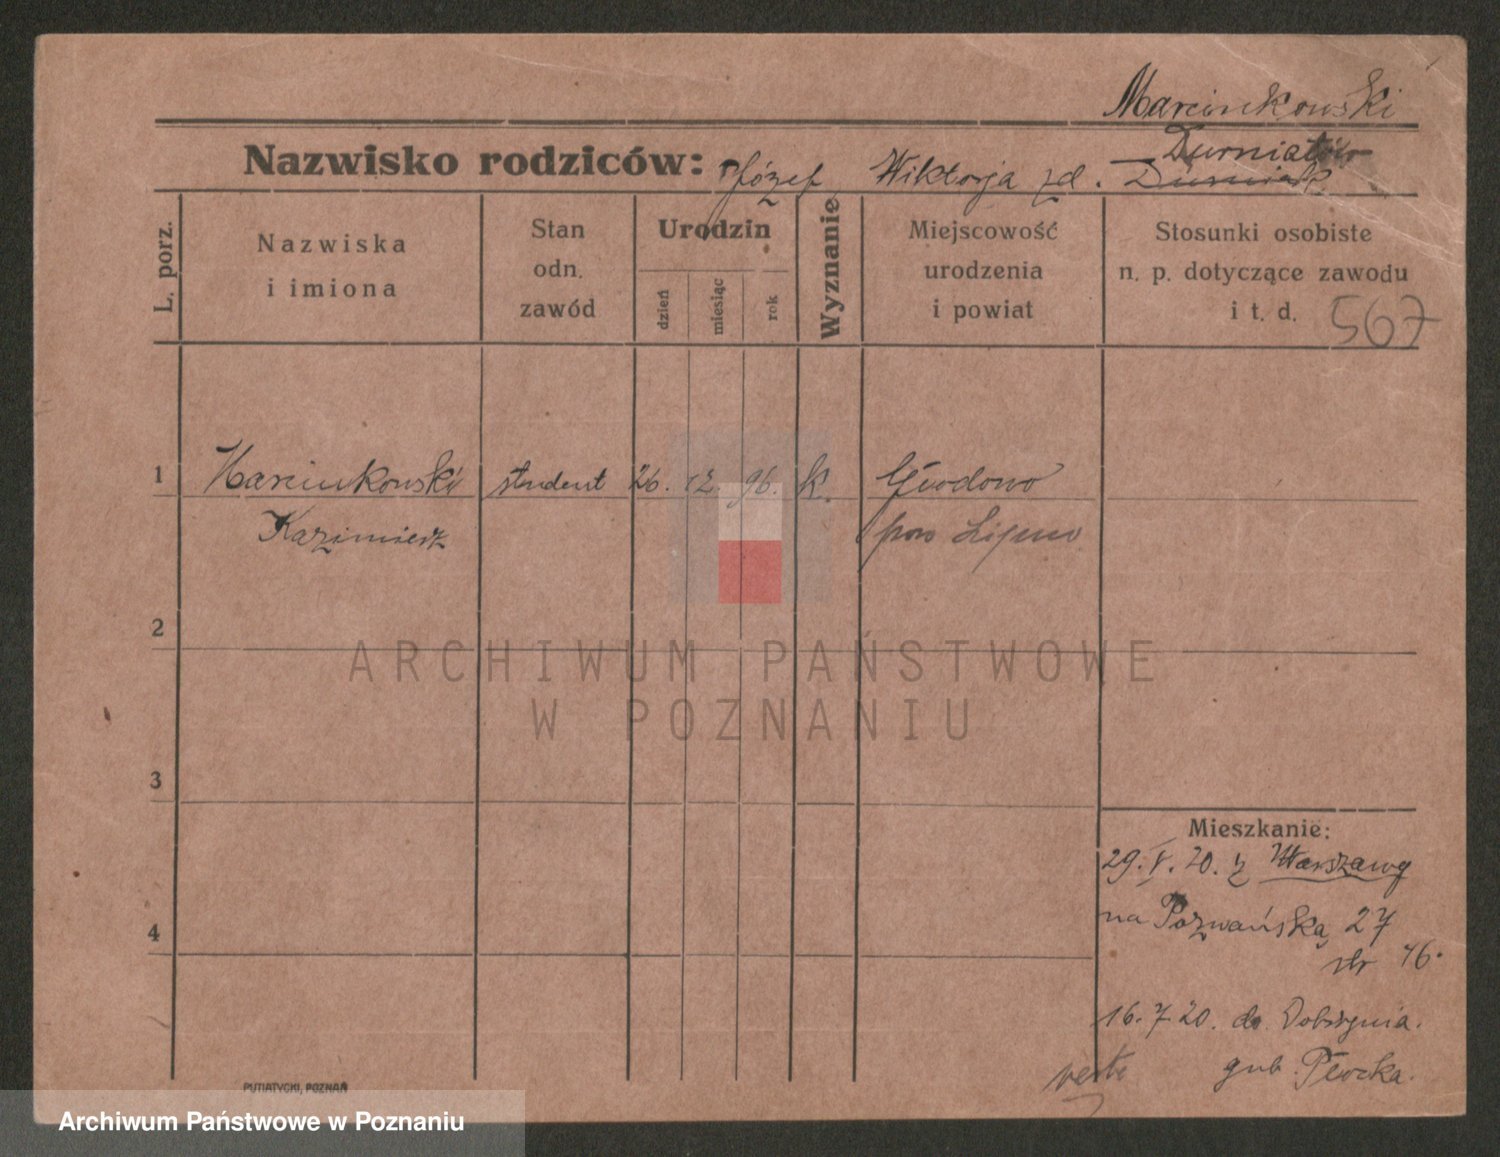 Marcinkowski
Nazwisko rodziców: Józef Wiktorja zd. Durniatów
L. porz.
Nazwiska
i imiona
Stan
odn.
zawód
Urodzin
dzień
miesiąc
rok
Wyznanie
Miejscowość
urodzenia
i powiat
Stosunki osobiste
n. p. dotyczące zawodu
i t. d. 567
1 Marcinkowski student 26. 12. 96. K. Głodowo
Kazimierz pow Lipno
2
3
4
Mieszkanie:
29. V. 20. z Warszawy
na Poznańską 27
16.
16. 7. 20. do Dobrzynia.
gub. Płocka.
verte
PUTIATYCKI, POZNAŃ
ARCHIWUM PAŃSTWOWE
W POZNANIU
Archiwum Państwowe w Poznaniu